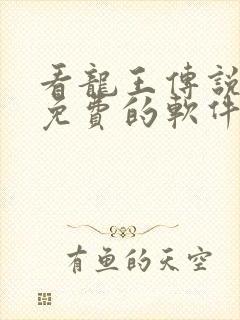 看龍王傳說
免費的軟件
有魚的天空